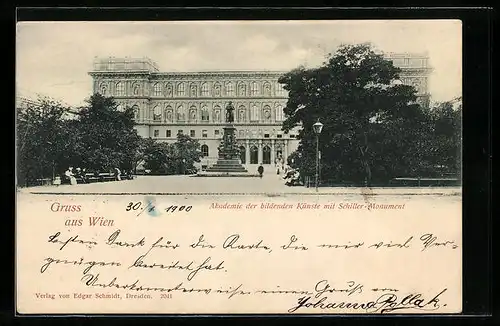 Gruss aus Wien
30/1 1900
Akademie der bildenden Künste mit Schiller-Monument
Besten Dank für die Karte, die mir viel Ver-
gnügen bereitet hat.
Unbekannterweise einen Gruß von
Johanna Pollak.
Verlag von Edgar Schmidt, Dresden. 2041